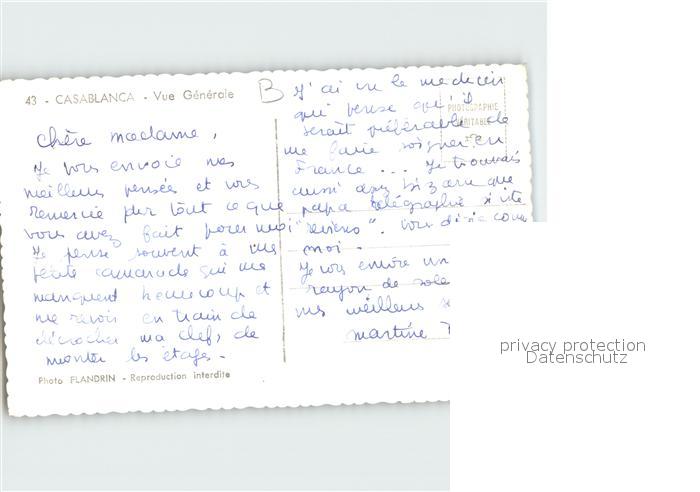 43 - CASABLANCA - Vue Générale
Chère madame,
Je vous envoie mes
meilleures pensées et vous
remercie pour tout ce que
vous avez fait pour moi
Je pense souvent à mes
petite camarade qui me
manquent beaucoup et
me revois en train de
décrocher ma clef, de
monter les étages.
Photo FLANDRIN - Reproduction interdite
B
J'ai vu le medecin
qui pense qu'il
serait préférable de
me faire soigner en
France... Je trouvais
aussi assez bizarre que
papa télégraphie si vite
"reviens".
moi.
Je vous envoie un
rayon de sole
mes meilleurs s
martine
PHOTOGRAPHIE
VÉRITABLE
privacy protection
Datenschutz